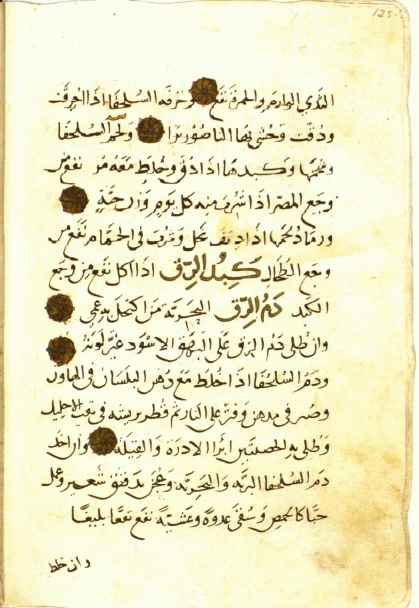 125
الثدي الوارم والحمرة نفع وخزفة السلحفا اذا احرقت
ودقت وحشي بها الناصور برا ولحم السلحفا
وشحمها وكبدها اذا دق وخلط معه مر نفع من
وجع اذا شرب منه كل يوم وزن حبة
ورماد لحمها اذا اديف بخل وشرب في الحمام نفع من
وجع الطحال كبد الرق اذا اكل نفع من وجع
الكبد دم الرق البحرية من اكتحل به عمي
وان طلي دم الرق على البهق الاسود غير لونه
ودم السلحفا اذا خلط مع دهن البلسان في الهاون
وصير في مدهن وفتر على النار ثم قطر بريشة في ثقب الاحليل
وطلي به الخصيتين ابرا الادرة والقيلة وان اخذ
دم السلحفا البرية والبحرية وعجن بدقيق شعير وعمل
حبا كالحمص وسقي غدوة وعشية نفع نفعا بليغا
وان خلط